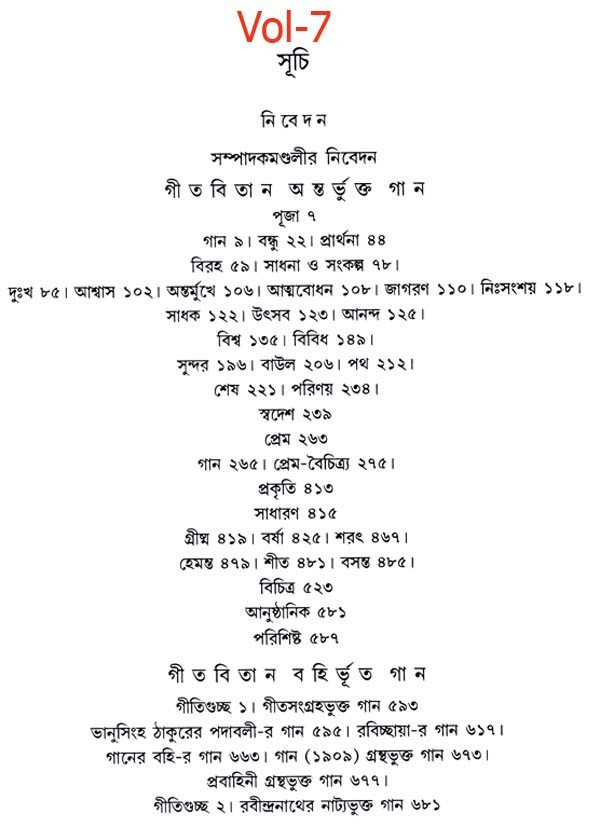 Vol-7
সূচি
নিবেদন
সম্পাদকমণ্ডলীর নিবেদন
গীতবিতান অন্তর্ভুক্ত গান
পূজা ৭
গান ৯। বন্ধু ২২। প্রার্থনা ৪৪
বিরহ ৫৯। সাধনা ও সংকল্প ৭৮।
দুঃখ ৮৫। আশ্বাস ১০২। অন্তর্মুখে ১০৬। আত্মবোধন ১০৮। জাগরণ ১১০। নিঃসংশয় ১১৮।
সাধক ১২২। উৎসব ১২৩। আনন্দ ১২৫।
বিশ্ব ১৩৫। বিবিধ ১৪৯।
সুন্দর ১৯৬। বাউল ২০৬। পথ ২১২।
শেষ ২২১। পরিণয় ২৩৪।
স্বদেশ ২৩৯
প্রেম ২৬৩
গান ২৬৫। প্রেম-বৈচিত্র্য ২৭৫।
প্রকৃতি ৪১৩
সাধারণ ৪১৫
গ্রীষ্ম ৪১৯। বর্ষা ৪২৫। শরৎ ৪৬৭।
হেমন্ত ৪৭৯। শীত ৪৮১। বসন্ত ৪৮৫।
বিচিত্র ৫২৩
আনুষ্ঠানিক ৫৮১
পরিশিষ্ট ৫৮৭
গীতবিতান বহির্ভূত গান
গীতিগুচ্ছ ১। গীতসংগ্রহভুক্ত গান ৫৯৩
ভানুসিংহ ঠাকুরের পদাবলী-র গান ৫৯৫। রবিচ্ছায়া-র গান ৬১৭।
গানের বহি-র গান ৬৬৩। গান (১৯০৯) গ্রন্থভুক্ত গান ৬৭৩।
প্রবাহিনী গ্রন্থভুক্ত গান ৬৭৭।
গীতিগুচ্ছ ২। রবীন্দ্রনাথের নাট্যভুক্ত গান ৬৮১